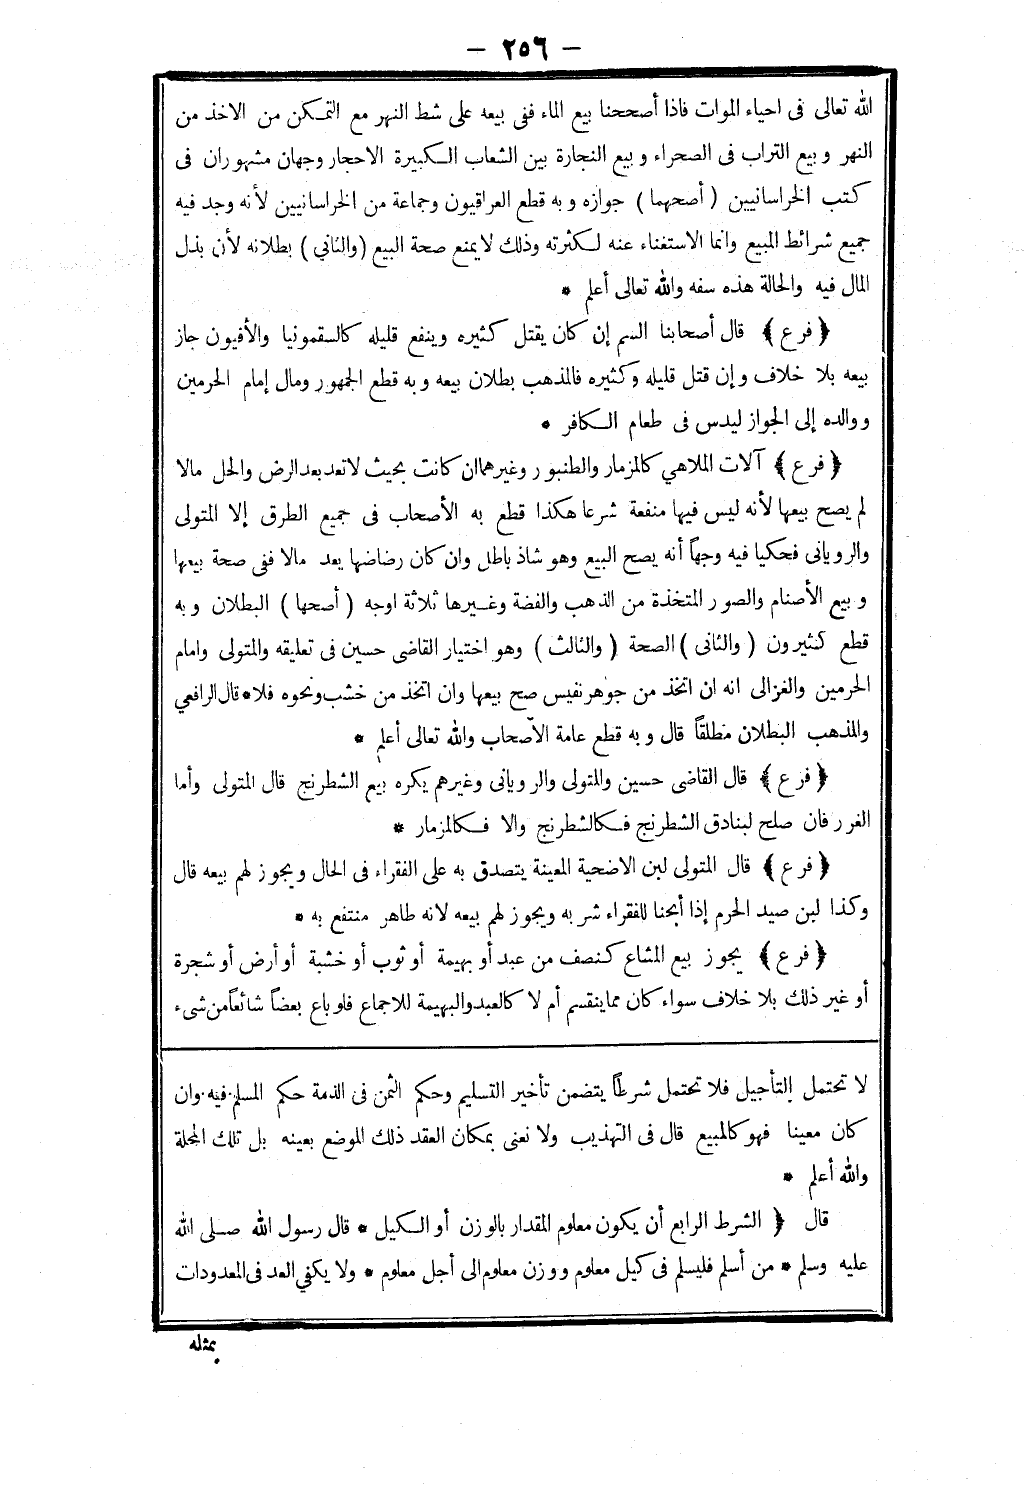 — ٢٥٦ —
الله تعالى فى احياء الموات فاذا أصححنا بيع الماء ففى بيعه على شط النهر مع التمكن من الاخذ من
النهر وبيع التراب فى الصحراء وبيع النجارة بين الشعاب الكبيرة الاحجار وجهان مشهوران فى
كتب الخراسانيين ( أصحهما ) جوازه وبه قطع العراقيون وجماعة من الخراسانيين لأنه وجد فيه
جميع شرائط المبيع وانما الاستغناء عنه لكثرته وذلك لايمنع صحة البيع (والثاني ) بطلانه لأن بذل
المال فيه والحالة هذه سفه والله تعالى أعلم *
﴿ فرع ﴾ قال أصحابنا السم إن كان يقتل كثيره وينفع قليله كالسقمونيا والأفيون جاز
بيعه بلا خلاف وإن قتل قليله وكثيره فالمذهب بطلان بيعه وبه قطع الجمهور ومال إمام الحرمين
ووالده إلى الجواز ليدس فى طعام الكافر *
﴿ فرع ﴾ آلات الملاهي كالمزمار والطنبور وغيرهماان كانت بحيث لاتعد بعد الرض والحل مالا
لم يصح بيعها لأنه ليس فيها منفعة شرعا هكذا قطع به الأصحاب فى جميع الطرق إلا المتولى
والرويانى فحكيا فيه وجهاً أنه يصح البيع وهو شاذ باطل وان كان رضاضها يعد مالا ففى صحة بيعها
وبيع الأصنام والصور المتخذة من الذهب والفضة وغيرها ثلاثة اوجه ( أصحها ) البطلان وبه
قطع كثيرون ( والثانى ) الصحة ( والثالث ) وهو اختيار القاضى حسين فى تعليقه والمتولى وامام
الحرمين والغزالى انه ان اتخذ من جوهر نفيس صح بيعها وان اتخذ من خشب ونحوه فلا * قال الرافعي
والمذهب البطلان مطلقاً قال وبه قطع عامة الأصحاب والله تعالى أعلم *
﴿ فرع ﴾ قال القاضى حسين والمتولى والرويانى وغيرهم يكره بيع الشطرنج قال المتولى وأما
الغرر فان صلح لبنادق الشطرنج فكالشطرنج والا فكالمزمار *
﴿ فرع ﴾ قال المتولى لبن الاضحية المعينة يتصدق به على الفقراء فى الحال ويجوز لهم بيعه قال
وكذا لبن صيد الحرم إذا أبحنا للفقراء شربه ويجوز لهم بيعه لانه طاهر منتفع به *
﴿ فرع ﴾ يجوز بيع المشاع كنصف من عبد أو بهيمة أو ثوب أو خشبة أو أرض أو شجرة
أو غير ذلك بلا خلاف سواء كان مماينقسم أم لا كالعبد والبهيمة للاجماع فلو باع بعضاً شائعاً من شىء
لا تحتمل التأجيل فلا تحتمل شرطاً يتضمن تأخير التسليم وحكم الثمن فى الذمة حكم المسلم فيه وان
كان معينا فهو كالمبيع قال فى التهذيب ولا نعنى بمكان العقد ذلك الموضع بعينه بل تلك المحلة
والله أعلم *
قال ﴿ الشرط الرابع أن يكون معلوم المقدار بالوزن أو الكيل * قال رسول الله صلى الله
عليه وسلم * من أسلم فليسلم فى كيل معلوم ووزن معلوم الى أجل معلوم * ولا يكفي العد فى المعدودات
بمثله